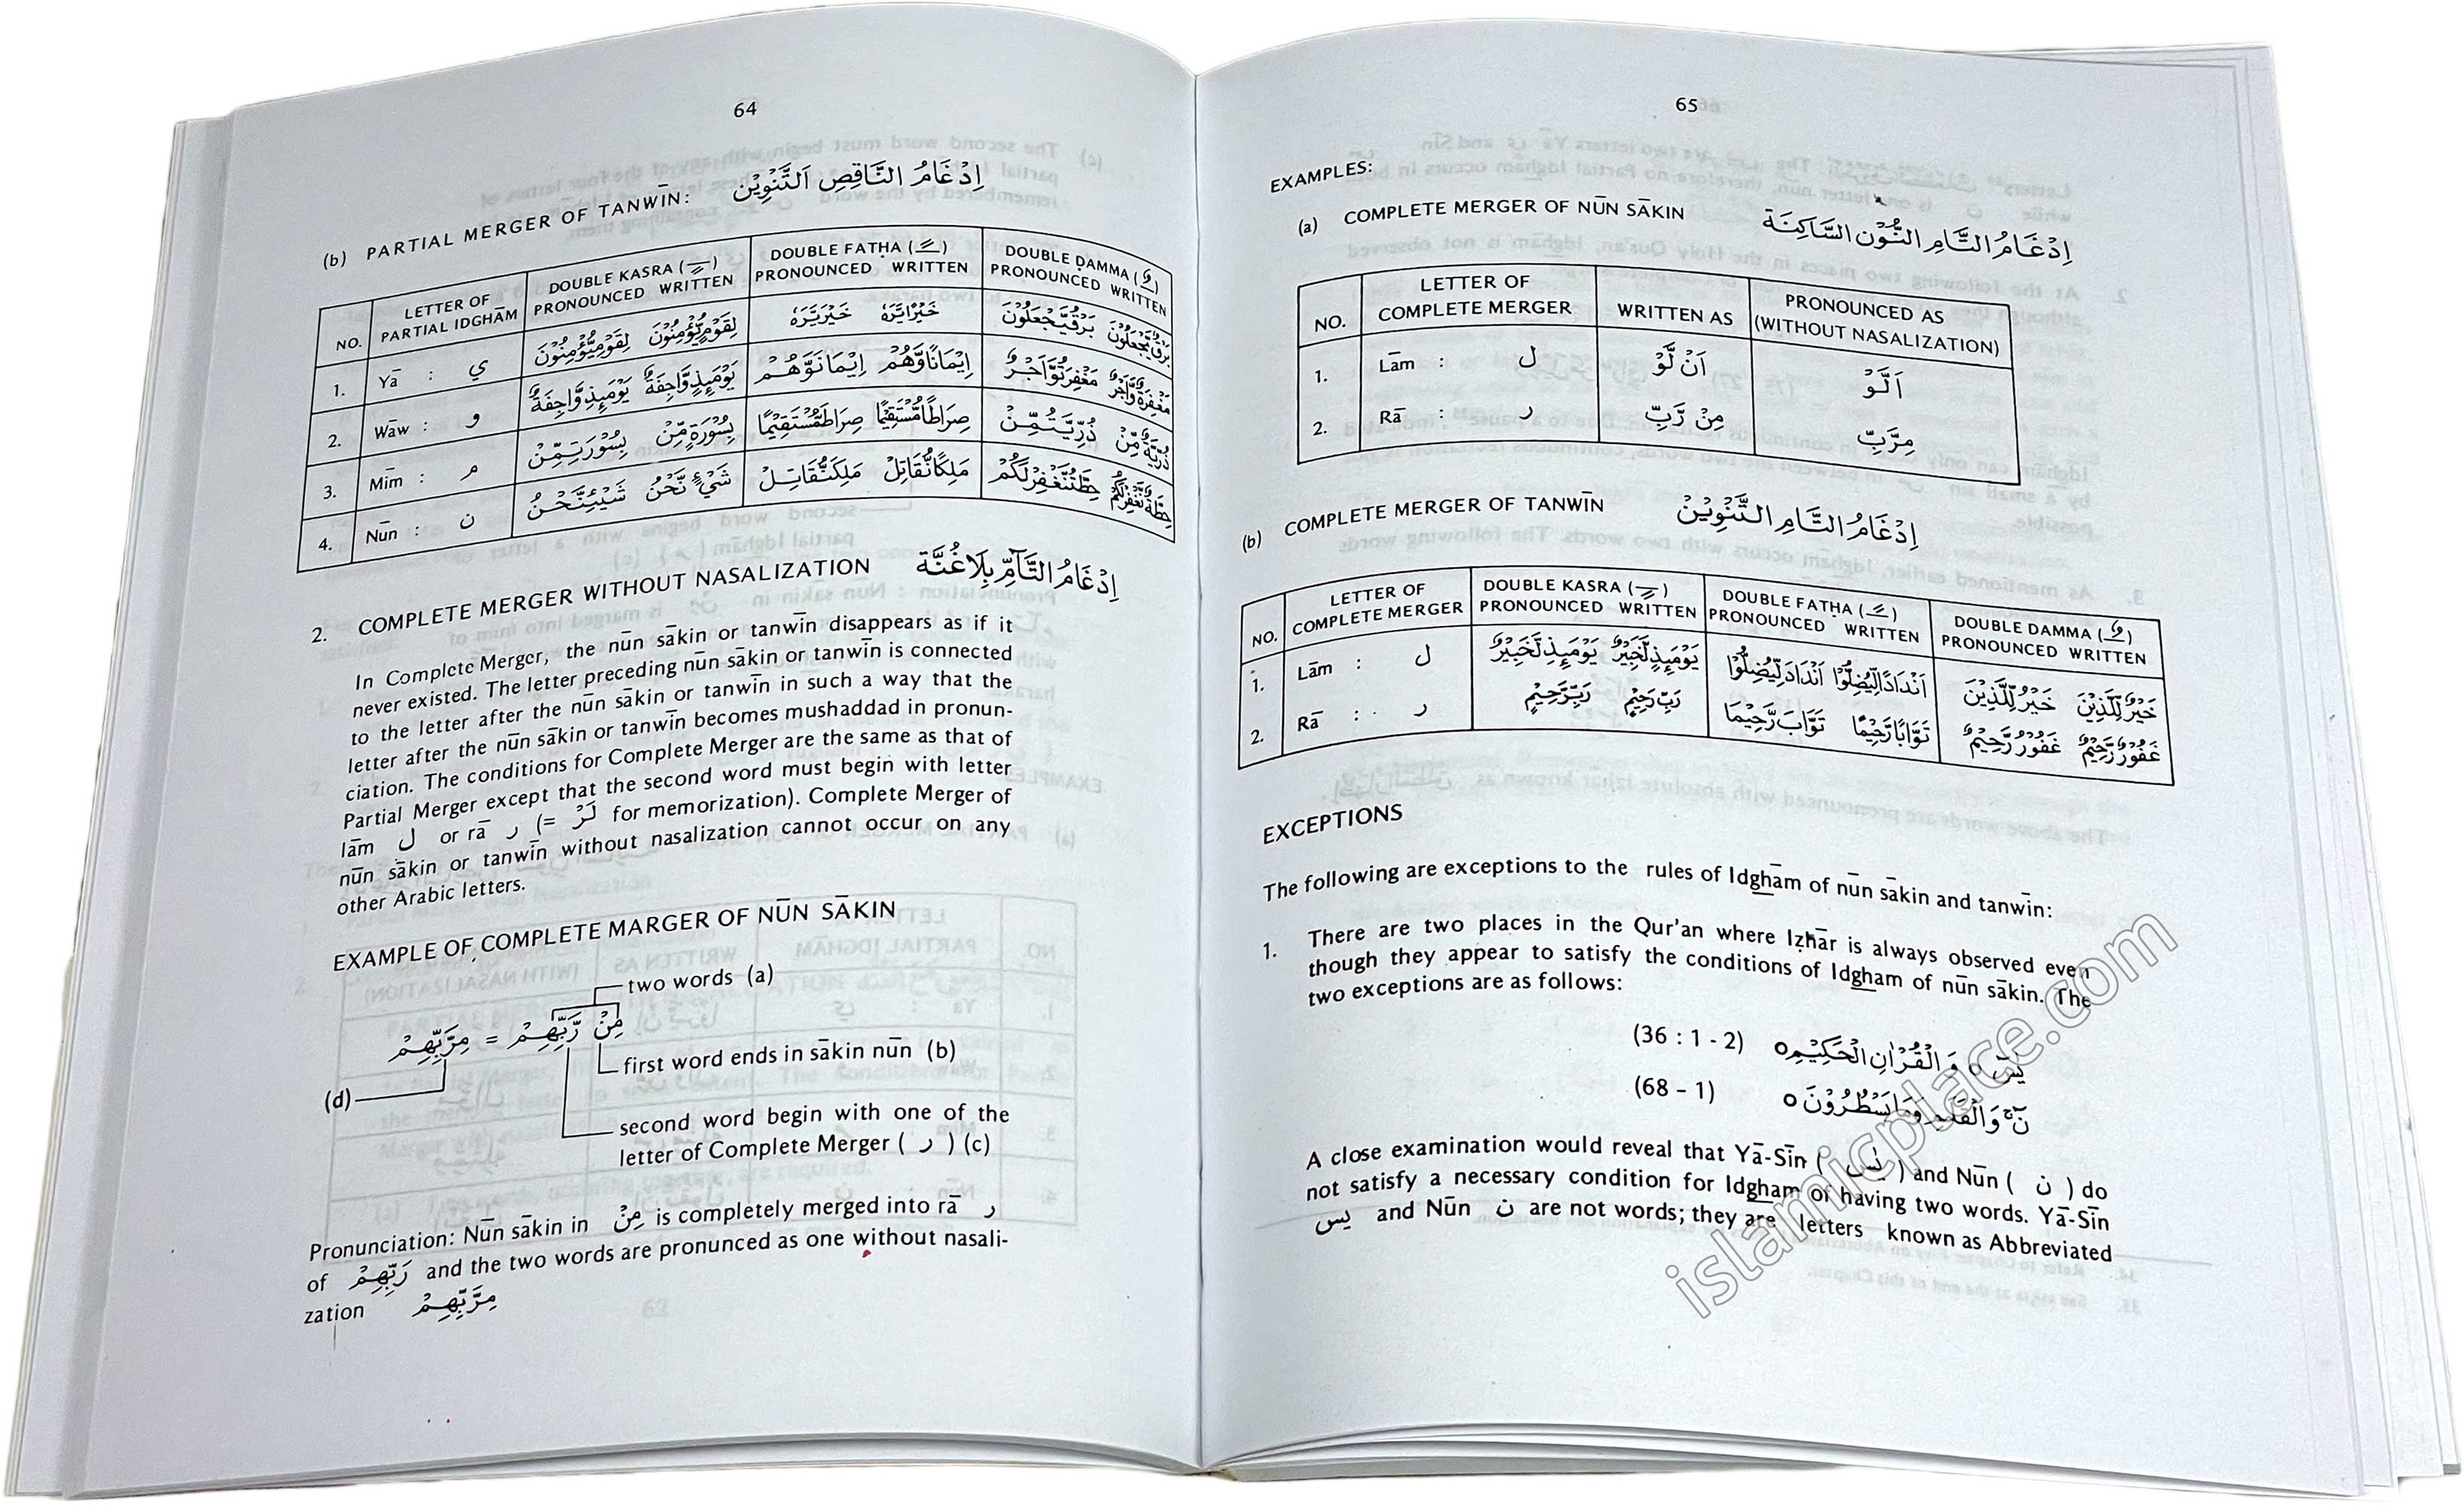 64
(b) PARTIAL MERGER OF TANWĪN: اِدْغَامُ النَّاقِصِ اَلتَّنْوِيْن
NO. LETTER OF PARTIAL IDGHĀM DOUBLE KASRA ( ـٍ ) PRONOUNCED WRITTEN DOUBLE FATḤA ( ـً ) PRONOUNCED WRITTEN DOUBLE ḌAMMA ( ـٌ ) PRONOUNCED WRITTEN
1. Yā : ي لِقَوْمِيُّؤْمِنُوْنَ لِقَوْمٍ يُّؤْمِنُوْنَ خَيْرَيَّرَهٗ خَيْرًا يَّرَهٗ بَرْقُيَّجْعَلُوْنَ بَرْقٌ يَّجْعَلُوْنَ
2. Wāw : و يَوْمَئِذِوَّاجِفَةٌ يَوْمَئِذٍ وَّاجِفَةٌ إِيْمَانَوَّهُمْ إِيْمَانًا وَّهُمْ مَغْفِرَتُوَّاَجْرٌ مَغْفِرَةٌ وَّاَجْرٌ
3. Mīm : م بِسُوْرَتِمِّنْ بِسُوْرَةٍ مِّنْ صِرَاطَمُّسْتَقِيْمًا صِرَاطًا مُّسْتَقِيْمًا ذُرِّيَّتُمِّنْ ذُرِّيَّةٌ مِّنْ
4. Nūn : ن شَيْئِنَّحْنُ شَيْءٍ نَّحْنُ مَلِكَنُّقَاتِلْ مَلِكًا نُّقَاتِلْ حِطَّتُنَّغْفِرْلَكُمْ حِطَّةٌ نَّغْفِرْلَكُمْ
2. COMPLETE MERGER WITHOUT NASALIZATION اِدْغَامُ التَّآمِّ بِلَاغُنَّة
In Complete Merger, the nūn sākin or tanwīn disappears as if it
never existed. The letter preceding nūn sākin or tanwīn is connected
to the letter after the nūn sākin or tanwīn in such a way that the
letter after the nūn sākin or tanwīn becomes mushaddad in pronun-
ciation. The conditions for Complete Merger are the same as that of
Partial Merger except that the second word must begin with letter
lām ل or rā ر (= لَرْ for memorization). Complete Merger of
nūn sākin or tanwīn without nasalization cannot occur on any
other Arabic letters.
EXAMPLE OF COMPLETE MARGER OF NŪN SĀKIN
two words (a)
مِنْ رَّبِّهِمْ = مِرَّبِّهِمْ
first word ends in sākin nūn (b)
(d)
second word begin with one of the
letter of Complete Merger ( ر ) (c)
Pronunciation: Nūn sākin in مِنْ is completely merged into rā ر
of رَبِّهِمْ and the two words are pronunced as one without nasali-
zation مِرَّبِّهِمْ
65
EXAMPLES:
(a) COMPLETE MERGER OF NŪN SĀKIN اِدْغَامُ التَّامِ النُّوْنِ السَّاكِنَة
NO. LETTER OF COMPLETE MERGER WRITTEN AS PRONOUNCED AS (WITHOUT NASALIZATION)
1. Lām : ل اَنْ لَّوْ اَلَّوْ
2. Rā : ر مِنْ رَّبِّ مِرَّبِّ
(b) COMPLETE MERGER OF TANWĪN اِدْغَامُ التَّامِ التَّنْوِيْنْ
NO. LETTER OF COMPLETE MERGER DOUBLE KASRA ( ـٍ ) PRONOUNCED WRITTEN DOUBLE FATHA ( ـً ) PRONOUNCED WRITTEN DOUBLE DAMMA ( ـٌ ) PRONOUNCED WRITTEN
1. Lām : ل يَوْمَئِذِلَّخَبِيْرٌ يَوْمَئِذٍ لَّخَبِيْرٌ اَنْدَادَلِّيُضِلُّوْا اَنْدَادًا لِّيُضِلُّوْا خَيْرُلِّلَّذِيْنَ خَيْرٌ لِّلَّذِيْنَ
2. Rā : ر رَبِّرَّحِيْمٍ رَبٍّ رَحِيْمٍ تَوَّابَرَّحِيْمَا تَوَّابًا رَّحِيْمًا غَفُوْرُرَّحِيْمٌ غَفُوْرٌ رَّحِيْمٌ
EXCEPTIONS
The following are exceptions to the rules of Idghām of nūn sākin and tanwīn:
1. There are two places in the Qur'an where Iẓhār is always observed even
though they appear to satisfy the conditions of Idgham of nūn sākin. The
two exceptions are as follows:
(36 : 1 - 2) يٰسٓ ۝ وَالْقُرْاٰنِ الْحَكِيْمِ ۝
(68 – 1) نٓ ۚ وَالْقَلَمِ وَمَا يَسْطُرُوْنَ ۝
A close examination would reveal that Yā-Sīn ( يٰسٓ ) and Nūn ( ن ) do
not satisfy a necessary condition for Idgham of having two words. Yā-Sīn
يس and Nūn ن are not words; they are letters known as Abbreviated
islamicplace.com